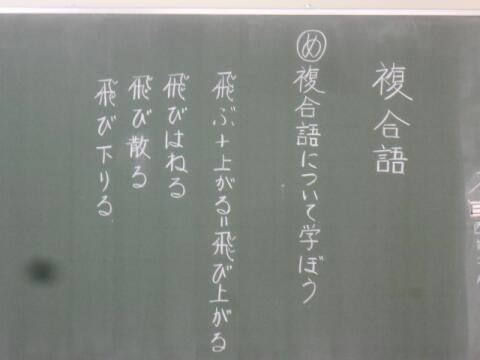 複合語
め複合語について学ぼう
飛ぶ+上がる=飛び上がる
飛びはねる
飛び散る
飛び下りる